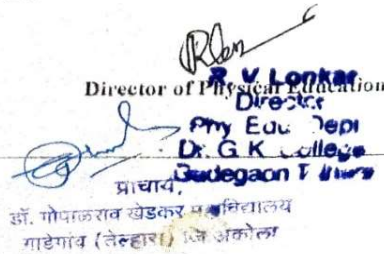 Director of Physical Education
R V Lonkar
Director
Phy Edu Depi
Dr. G K College
प्राचार्य,
डॉ. गोपाळराव खेडकर महाविद्यालय
गाडेगांव (तेल्हारा) जि अकोला